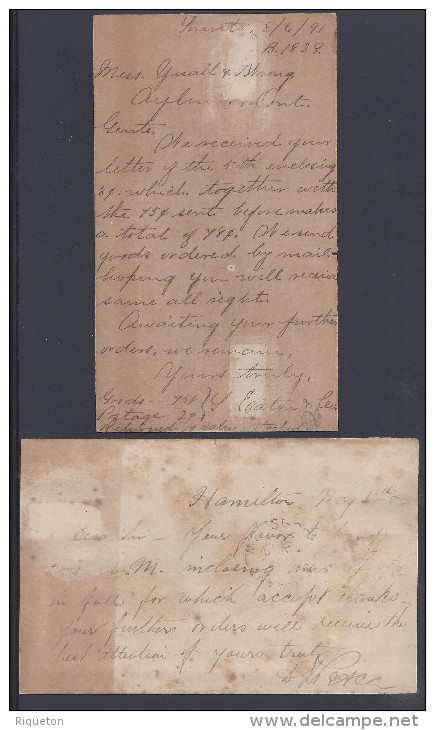 Toronto, 8/6/91
B.1839.
Mess. Yuall & Strong
Aylmer Ont.
Gents.
We received your
letter of the 5th enclosing
3¢. which together with
the 75¢ sent before makes
a total of 78¢. We send
goods ordered by mail
hoping you will receive
same all right.
Awaiting your further
orders, we remain,
Yours truly,
Goods 75¢
Postage 2¢
Returned in
Hamilton May
Dear Sir – Your favor to
M. inclosing
in full for which accept thanks
your further orders will receive the
best attention of yours truly
Riqueton
www.delcampe.net